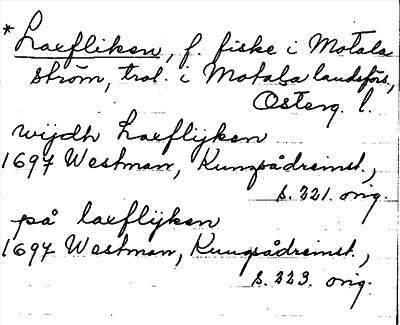 *Laxfliken, f. fiske i Motala
ström, trol. i Motala landsförs.,
Österg. l.
wijdh Laxflijken
1697 Westman, Kungsådreinst.,
s. 221. orig.
på laxflijken
1697 Westman, Kungsådreinst.,
s. 223. orig.